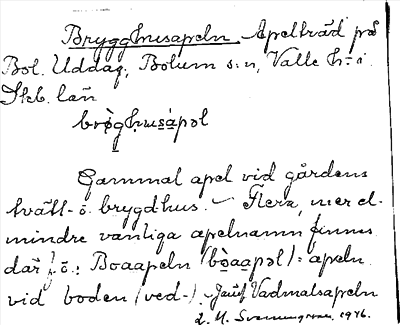 Brygghusapeln Apelträd på
Bol. Uddag, Bolum s:n, Valle h:d i
Skb. län
brø̀ghusàpəl
Gammal apel vid gårdens
tvätt- o. brygdhus. – Flera, mer el.
mindre vanliga apelnamn finns
där f. ö.: Boaapeln (bòaapəl) = apeln
vid boden (ved-). – Jämf. Vadmalsapeln
L. M. Svenungsson. 1946.